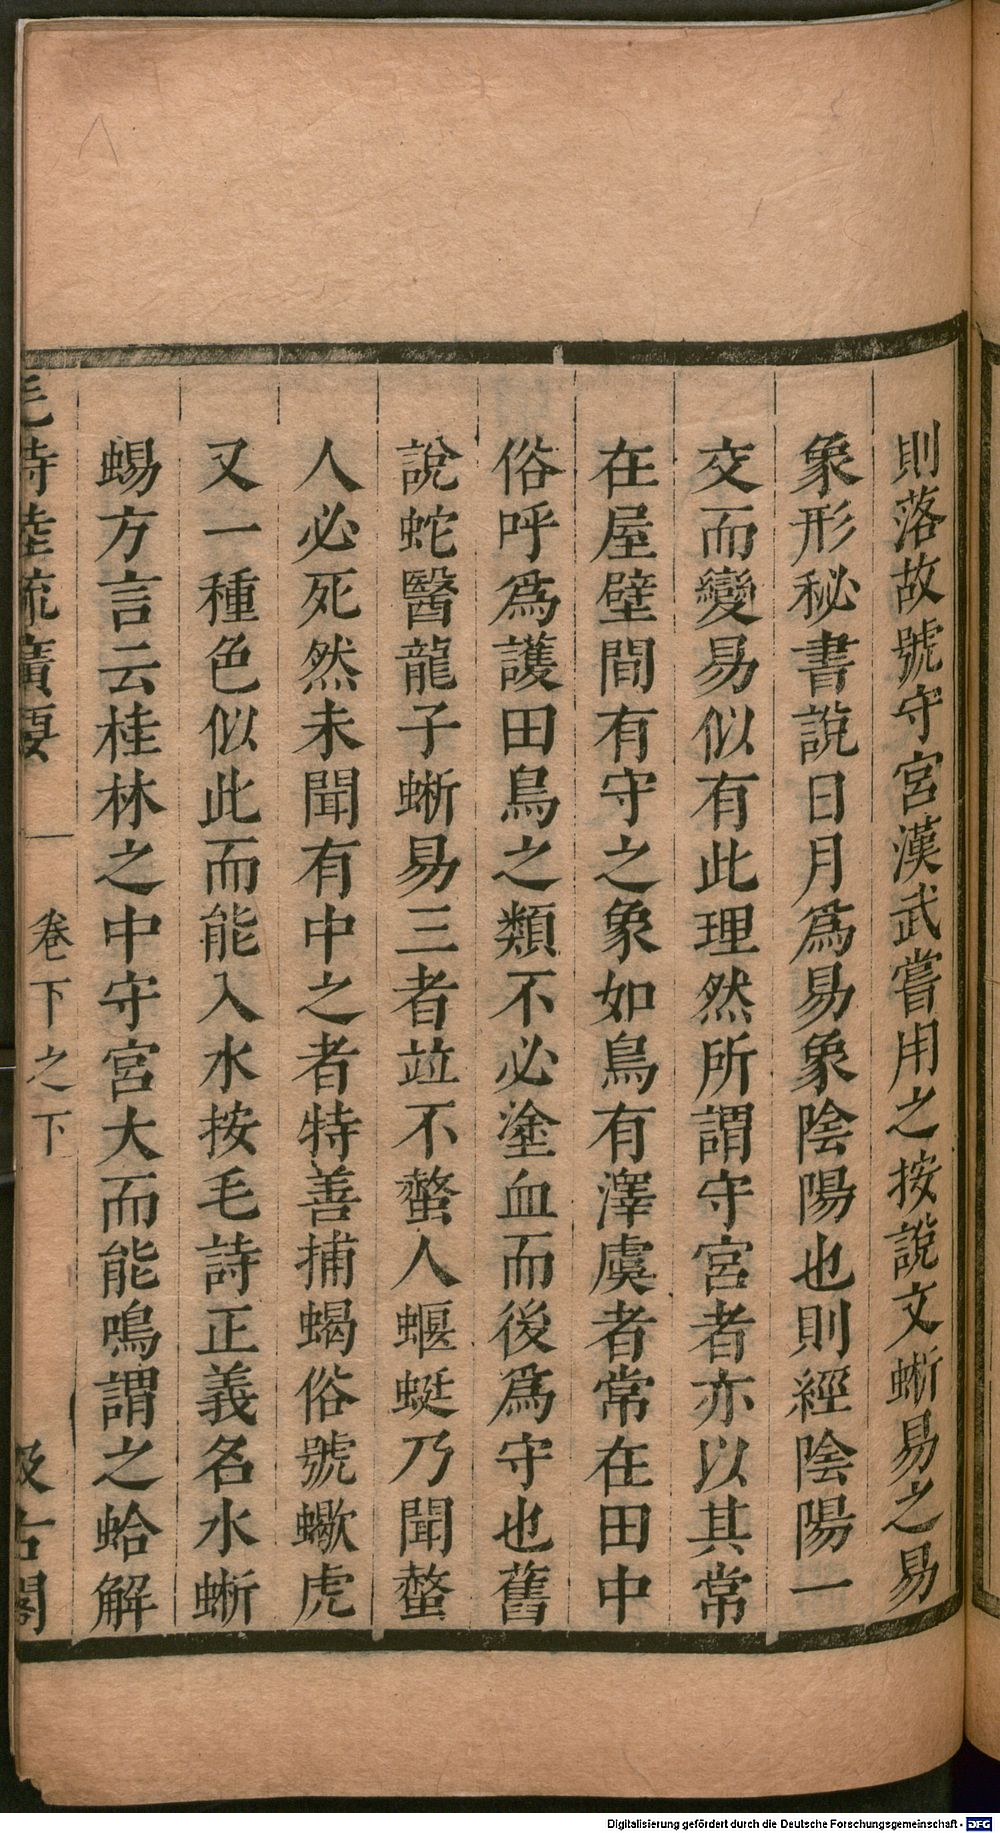 則落故號守宮漢武嘗用之按說文蜥易之易
象形秘書說日月爲易象陰陽也則經陰陽一
交而變易似有此理然所謂守宮者亦以其常
在屋壁間有守之象如鳥有澤虞者常在田中
俗呼爲護田鳥之類不必塗血而後爲守也舊
說蛇醫龍子蜥易三者竝不螫人蝘蜓乃聞螫
人必死然未聞有中之者特善捕蝎俗號蠍虎
又一種色似此而能入水按毛詩正義名水蜥
蜴方言云桂林之中守宮大而能鳴謂之蛤解
毛詩陸疏廣要 卷下之下 汲古閣
Digitalisierung gefördert durch die Deutsche Forschungsgemeinschaft - DFG